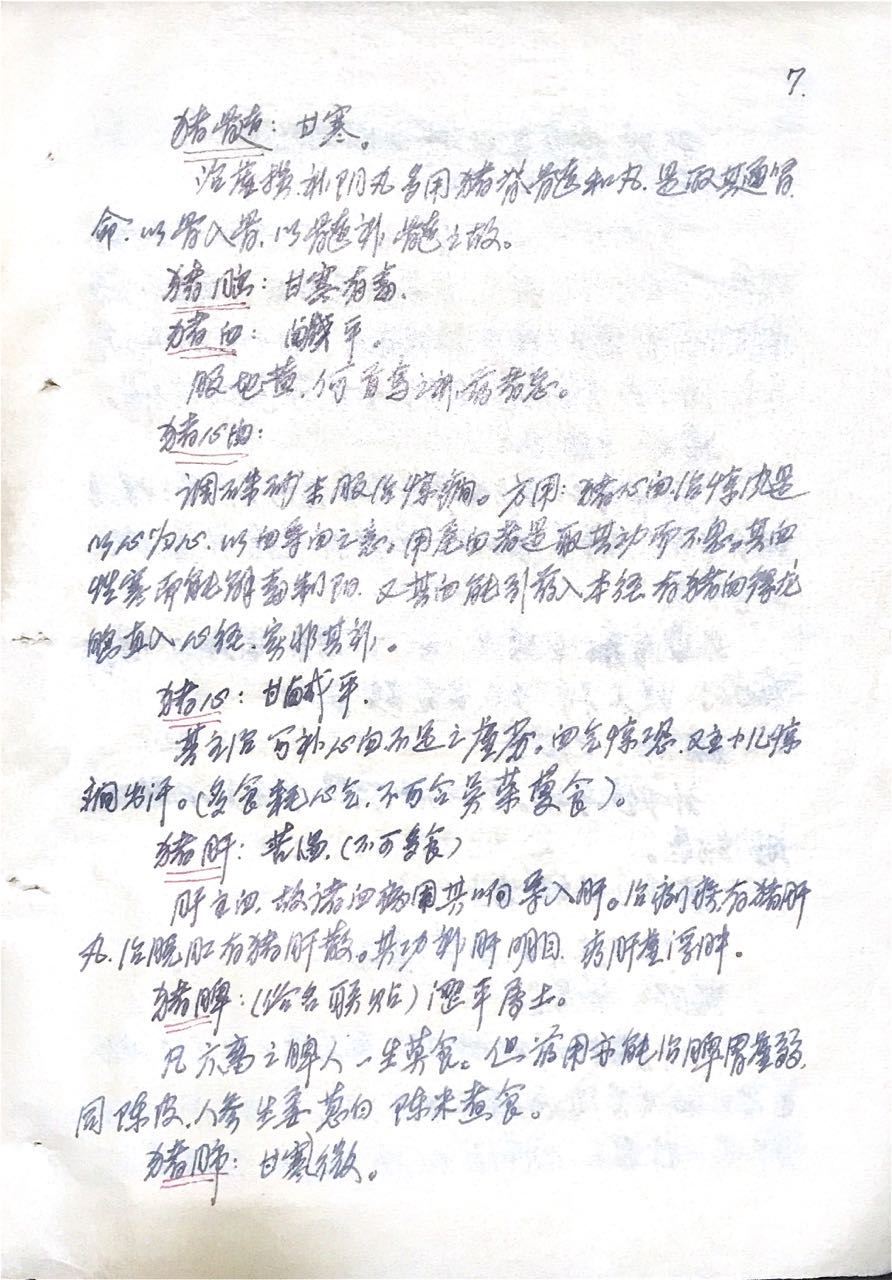 7.
猪骨髓：甘寒。
治虚损补阴丸多用猪脊髓和丸.是取其通肾
命.以骨入骨.以髓补髓之故。
猪脑：甘寒有毒.
猪血：咸平。
服地黄.何首乌之补药者忌。
猪心血：
调硃砂末服治惊痫。方用：猪心血治惊内是
以心归心.以血导血之意。用尾血者是取其动而不息。其血
性寒而能解毒制阳.又其血能引药入本经.有猪血得龙
脑直入心经.实非其补。
猪心：甘咸平.
其主治可补心血不足之虚劳。血气惊恐.又主小儿惊
痫出汗。(多食耗心气.不可合吴茱萸食)。
猪肝：苦温.(不可多食)
肝主血.故诸血病用其响导入肝。治痢疾有猪肝
丸.治脱肛有猪肝散。其功补肝明目.疗肝虚浮肿.
猪脾：(俗名联贴)涩平属土。
凡六畜之脾人一生莫食。但药用亦能治脾胃虚弱.
同陈皮.人参生姜葱白陈米煮食。
猪肺：甘寒微。